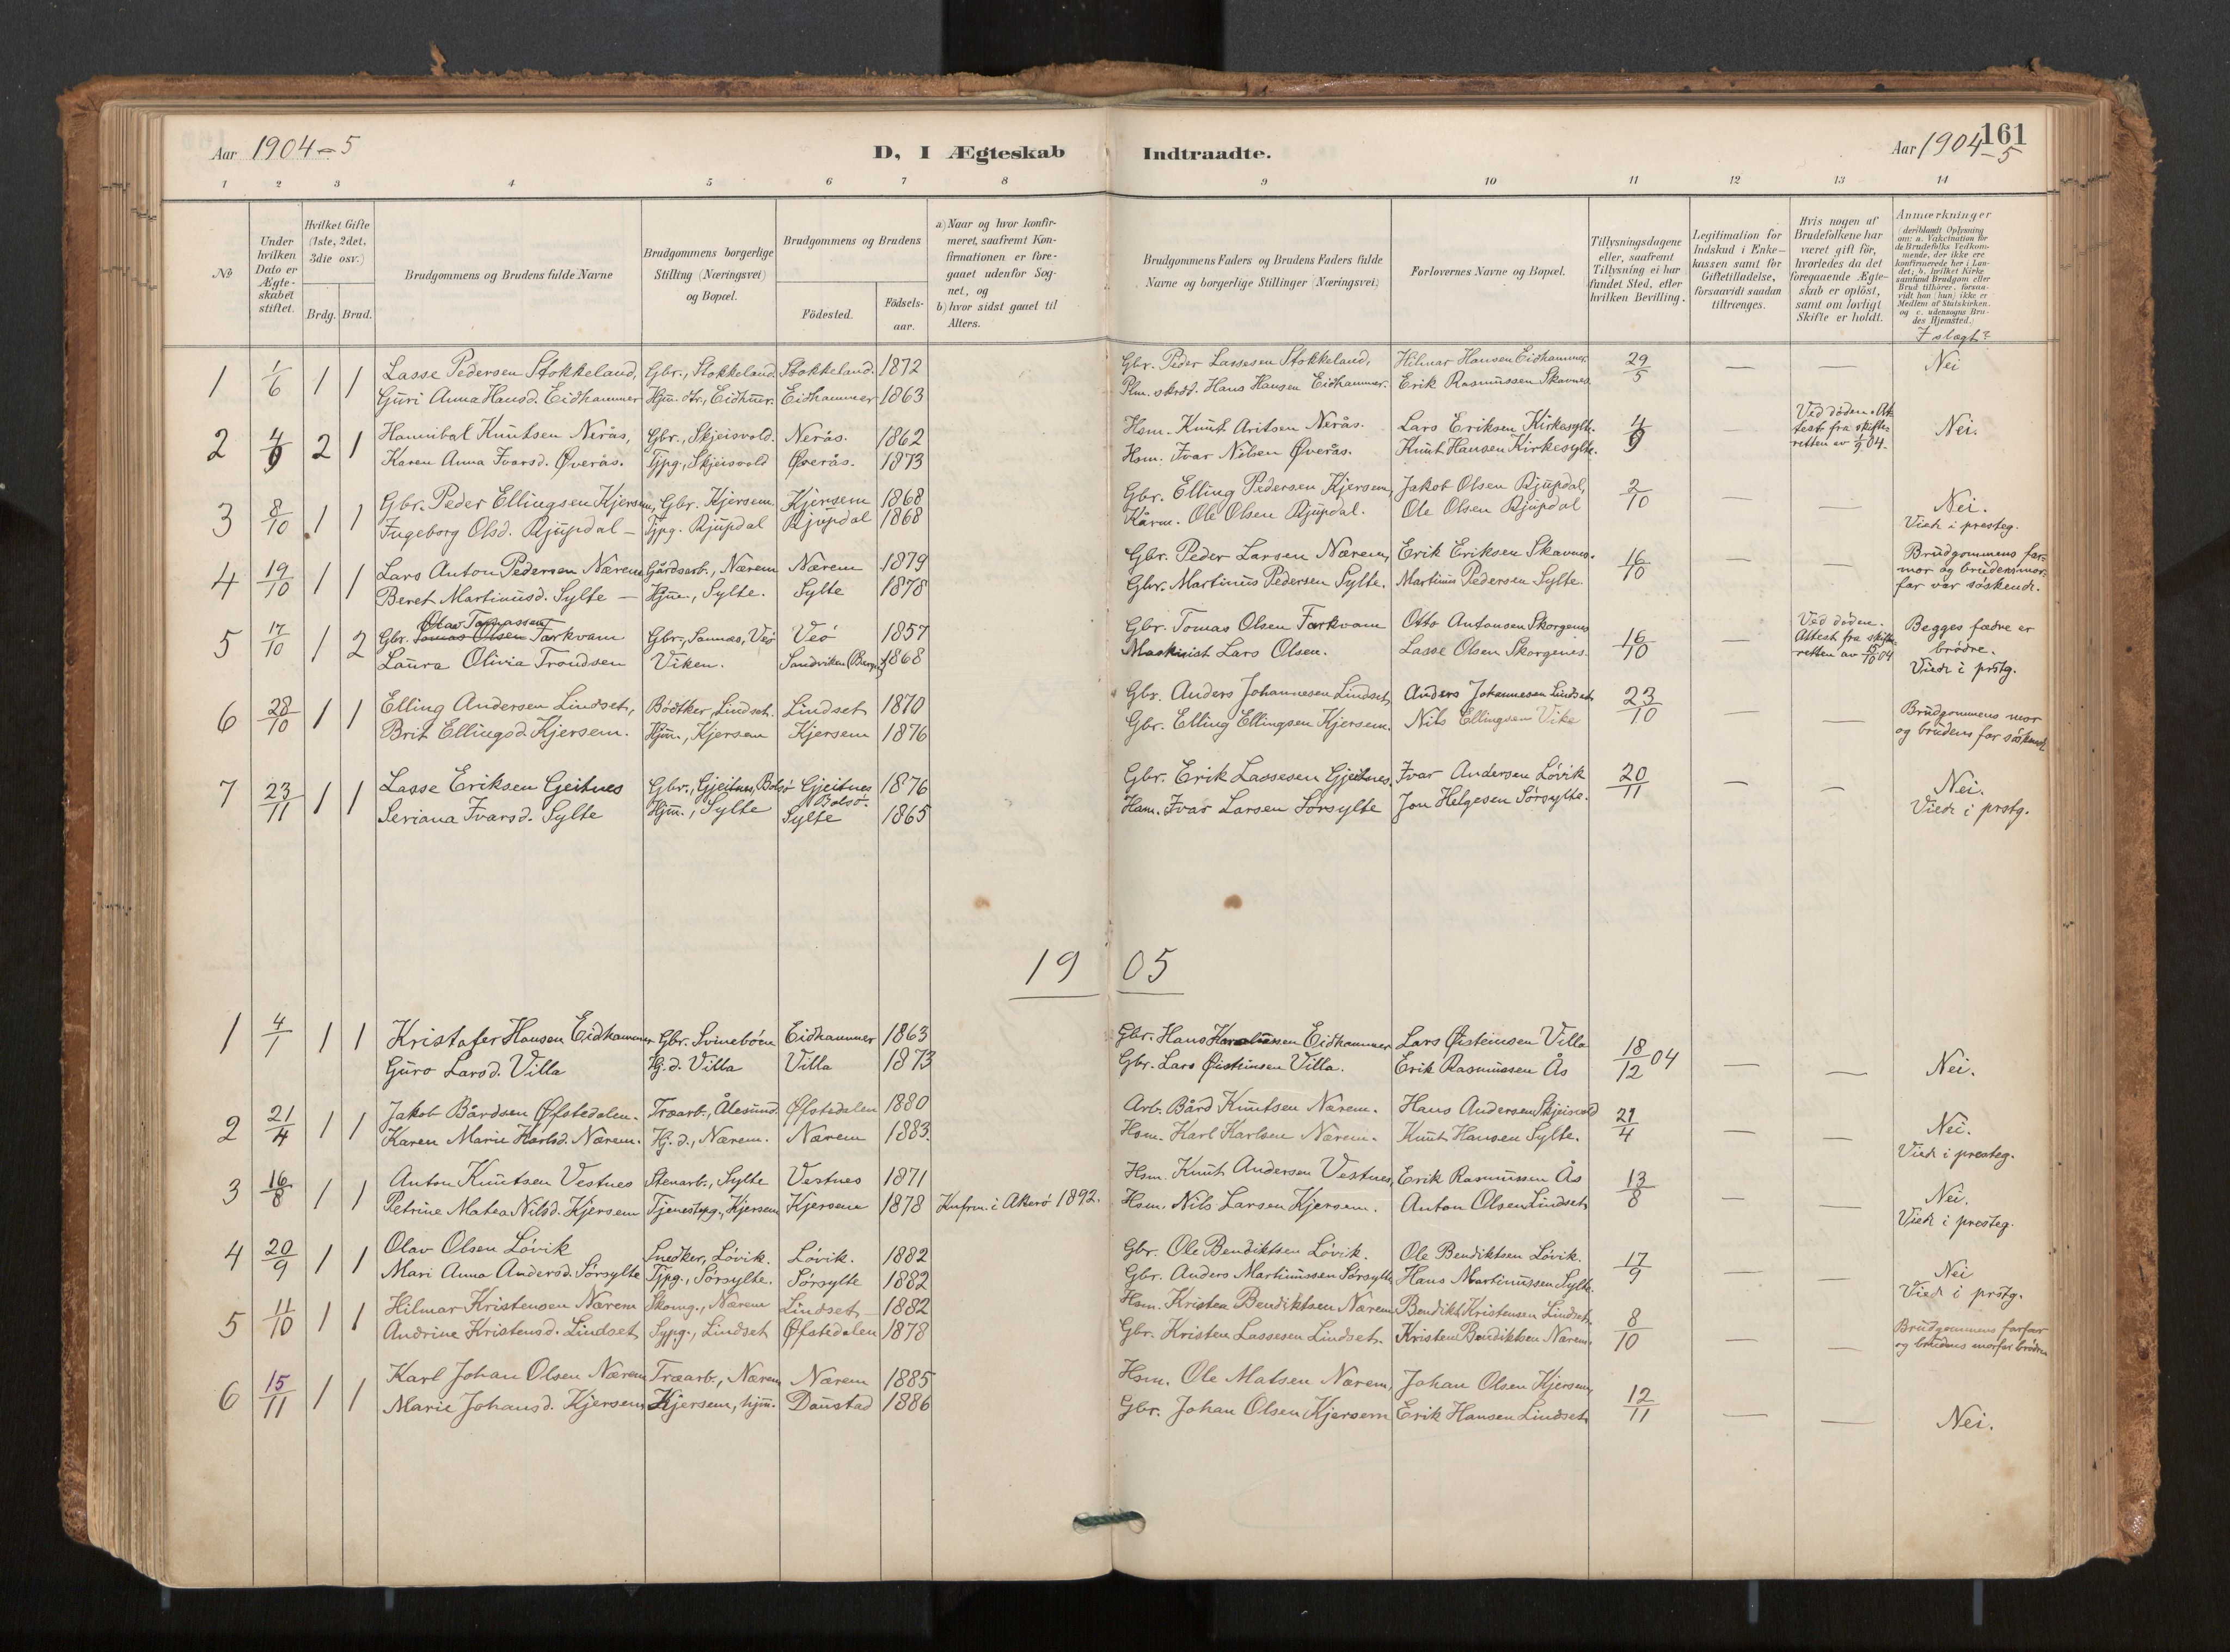 Aar 1904-5
D, I Ægteskab Indtraadte.
Aar 1904-5
161
1 2 3 4 5 6 7 8 9 10 11 12 13 14
No
Under hvilken Dato er Ægteskabet stiftet.
Hvilket Gifte (1ste, 2det, 3die osv.)
Brdg. Brud.
Brudgommens og Brudens fulde Navne
Brudgommens borgerlige Stilling (Næringsvei) og Bopæl.
Brudgommens og Brudens
Födested.
Födsels-aar.
a) Naar og hvor konfirmeret, saafremt Konfirmationen er foregaaet udenfor Sognet, og
b) hvor sidst gaaet til Alters.
Brudgommens Faders og Brudens Faders fulde Navne og borgerlige Stillinger (Næringsvei)
Forlovernes Navne og Bopæl.
Tillysningsdagene eller, saafremt Tillysning ei har fundet Sted, efter hvilken Bevilling.
Legitimation for Indskud i Enkekassen samt for Giftetilladelse, forsaavidt saadan tiltrænges.
Hvis nogen af Brudefolkene har været gift för, hvorledes da det foregaaende Ægteskab er oplöst, samt om lovligt Skifte er holdt.
Anmærkninger (deriblandt Oplysning om: a. Vakcination for de Brudefolks Vedkommende, der ikke ere konfirmerede her i Landet; b. hvilket Kirkesamfund Brudgom eller Brud tilhører, forsaavidt han (hun) ikke er Medlem af Statskirken, og c. udensogns Brudes Hjemsted.)
I slægt?
1 1/6 1 1 Lasse Pedersen Stokkeland, Gbr., Stokkeland. Stokkeland. 1872 Gbr. Peder Lassesen Stokkeland, Hilmar Hansen Eidhammer. 29/5 — — Nei
Guri Anna Hansd. Eidhammer Hjm. dtr., Eidhmr. Eidhammer 1863 Plm. skrdd. Hans Hansen Eidhammer. Erik Rasmussen Skavnes.
2 4/9 2 1 Hannibal Knutsen Nerås, Gbr., Skjeisvold. Nerås. 1862 Hsm. Knut Aritsen Nerås. Lars Eriksen Kirkesylte. 4/9 — Ved døden. Attest fra skifteretten av 1/9 04. Nei.
Karen Anna Ivarsd. Øverås. Tjpg., Skjeisvold Øverås. 1873 Hsm. Ivar Nilsen Øverås. Knut Hansen Kirkesylte.
3 8/10 1 1 Gbr. Peder Ellingsen Kjersem, Gbr. Kjersem. Kjersem 1868 Gbr. Elling Pedersen Kjersem, Jakob Olsen Rjupdal, 2/10 — — Nei.
Ingeborg Olsd. Rjupdal — Tjpg. Rjupdal Rjupdal 1868 Kårm. Ole Olsen Rjupdal. Ole Olsen Rjupdal Viedt i presteg.
4 19/10 1 1 Lars Anton Pedersen Nærem Gårdsarb., Nærem Nærem 1879 Gbr. Peder Larsen Nærem, Erik Eriksen Skavnes. 16/10 — — Brudgommens farmor og brudens morfar var søskende.
Beret Martinusd. Sylte — Hjm., Sylte. Sylte 1878 Gbr. Martinus Pedersen Sylte. Martinus Pedersen Sylte.
Olav Tomassen
5 17/10 1 2 Gbr. Tomas Olsen Farkvam Gbr., Sannæs, Veö Veö 1857 Gbr. Tomas Olsen Farkvam Otto Antonsen Skorgenes 16/10 — Ved døden. Attest fra skifteretten av 15/10 04 Begges fædre er brødre.
Laura Olivia Trondsen Viken. Sandviken (Bergen) 1868 Maskinist Lars Olsen. Lasse Olsen Skorgenes. Viedt i prstg.
6 28/10 1 1 Elling Andersen Lindset, Bödtker, Lindset. Lindset 1870 Gbr. Anders Johannesen Lindset, Anders Johannesen Lindset 23/10 — — Brudgommens mor og brudens far söskende
Brit Ellingsd. Kjersem. Hjm., Kjersem Kjersem 1876 Gbr. Elling Ellingsen Kjersem. Nils Ellingsen Vike
7 23/11 1 1 Lasse Eriksen Geitnes Gbr., Gjeitnes, Bolsö Gjeitnes Bolsö. 1876 Gbr. Erik Lassesen Gjeitnes. Ivar Andersen Lövik 20/11 — — Nei.
Seriana Ivarsd. Sylte Hjm., Sylte Sylte 1865 Hsm. Ivar Larsen Sörsylte Jon Helgesen Sörsylte. Viedt i prstg.
19 05
1 4/1 1 1 Kristofer Hansen Eidhammer Gbr. Svineböen Eidhammer 1863 Gbr. Hans Eidhammer Lars Østeinsen Villa 18/12 04 — — Nei.
Guro Larsd. Villa Hj. d. Villa Villa 1873 Gbr. Lars Øisteinsen Villa. Erik Rasmussen Ås
2 21/4 1 1 Jakob Bårdsen Øfstedalen. Træarb., Ålesund. Øfstedalen 1880 Arb. Bård Knutsen Nærem. Hans Andersen Skjeisvold 21/4 — — Nei.
Karen Marie Karlsd. Nærem. Hj. d., Nærem. Nærem 1883. Hsm. Karl Karlsen Nærem. Knut Hansen Sylte. Viedt i presteg.
3 16/8 1 1 Anton Knutsen Vestnes Stenarb., Sylte Vestnes 1871 Hsm. Knut Andersen Vestnes, Erik Rasmussen Ås 13/8 — — Nei.
Petrine Matea Nilsd. Kjersem Tjenestepg., Kjersem Kjersem 1878 Knfrm. i Akerö 1892. Hsm. Nils Larsen Kjersem. Anton Olsen Lindset Viedt i presteg.
4 20/9 1 1 Olav Olsen Lövik Snedker, Lövik. Lövik. 1882 Gbr. Ole Bendiktsen Lövik. Ole Bendiktsen Lövik. 17/9 — — Nei
Mari Anna Andersd. Sörsylte Tjpg., Sörsylte. Sörsylte 1882 Gbr. Anders Martinussen Sörsylte Hans Martinussen Sylte. Viedt i prstg.
5 11/10 1 1 Hilmar Kristensen Nærem Skomg., Nærem Lindset — 1882 Hsm. Kristen Bendiktsen Nærem Bendikt Kristensen Lindset 8/10 — — Brudgommens farfar og brudens morfar brödre
Andrine Kristensd. Lindset Sypg., Lindset Øfstedalen 1878 Gbr. Kristen Lassesen Lindset. Kristen Bendiktsen Nærem.
6 15/11 1 1 Karl Johan Olsen Nærem Træarb., Nærem Nærem 1885 Hsm. Ole Matsen Nærem, Johan Olsen Kjersem, 12/11 — — Nei.
Marie Johansd. Kjersem Kjersem, hjm. Daustad 1886 Gbr. Johan Olsen Kjersem Erik Hansen Lindset